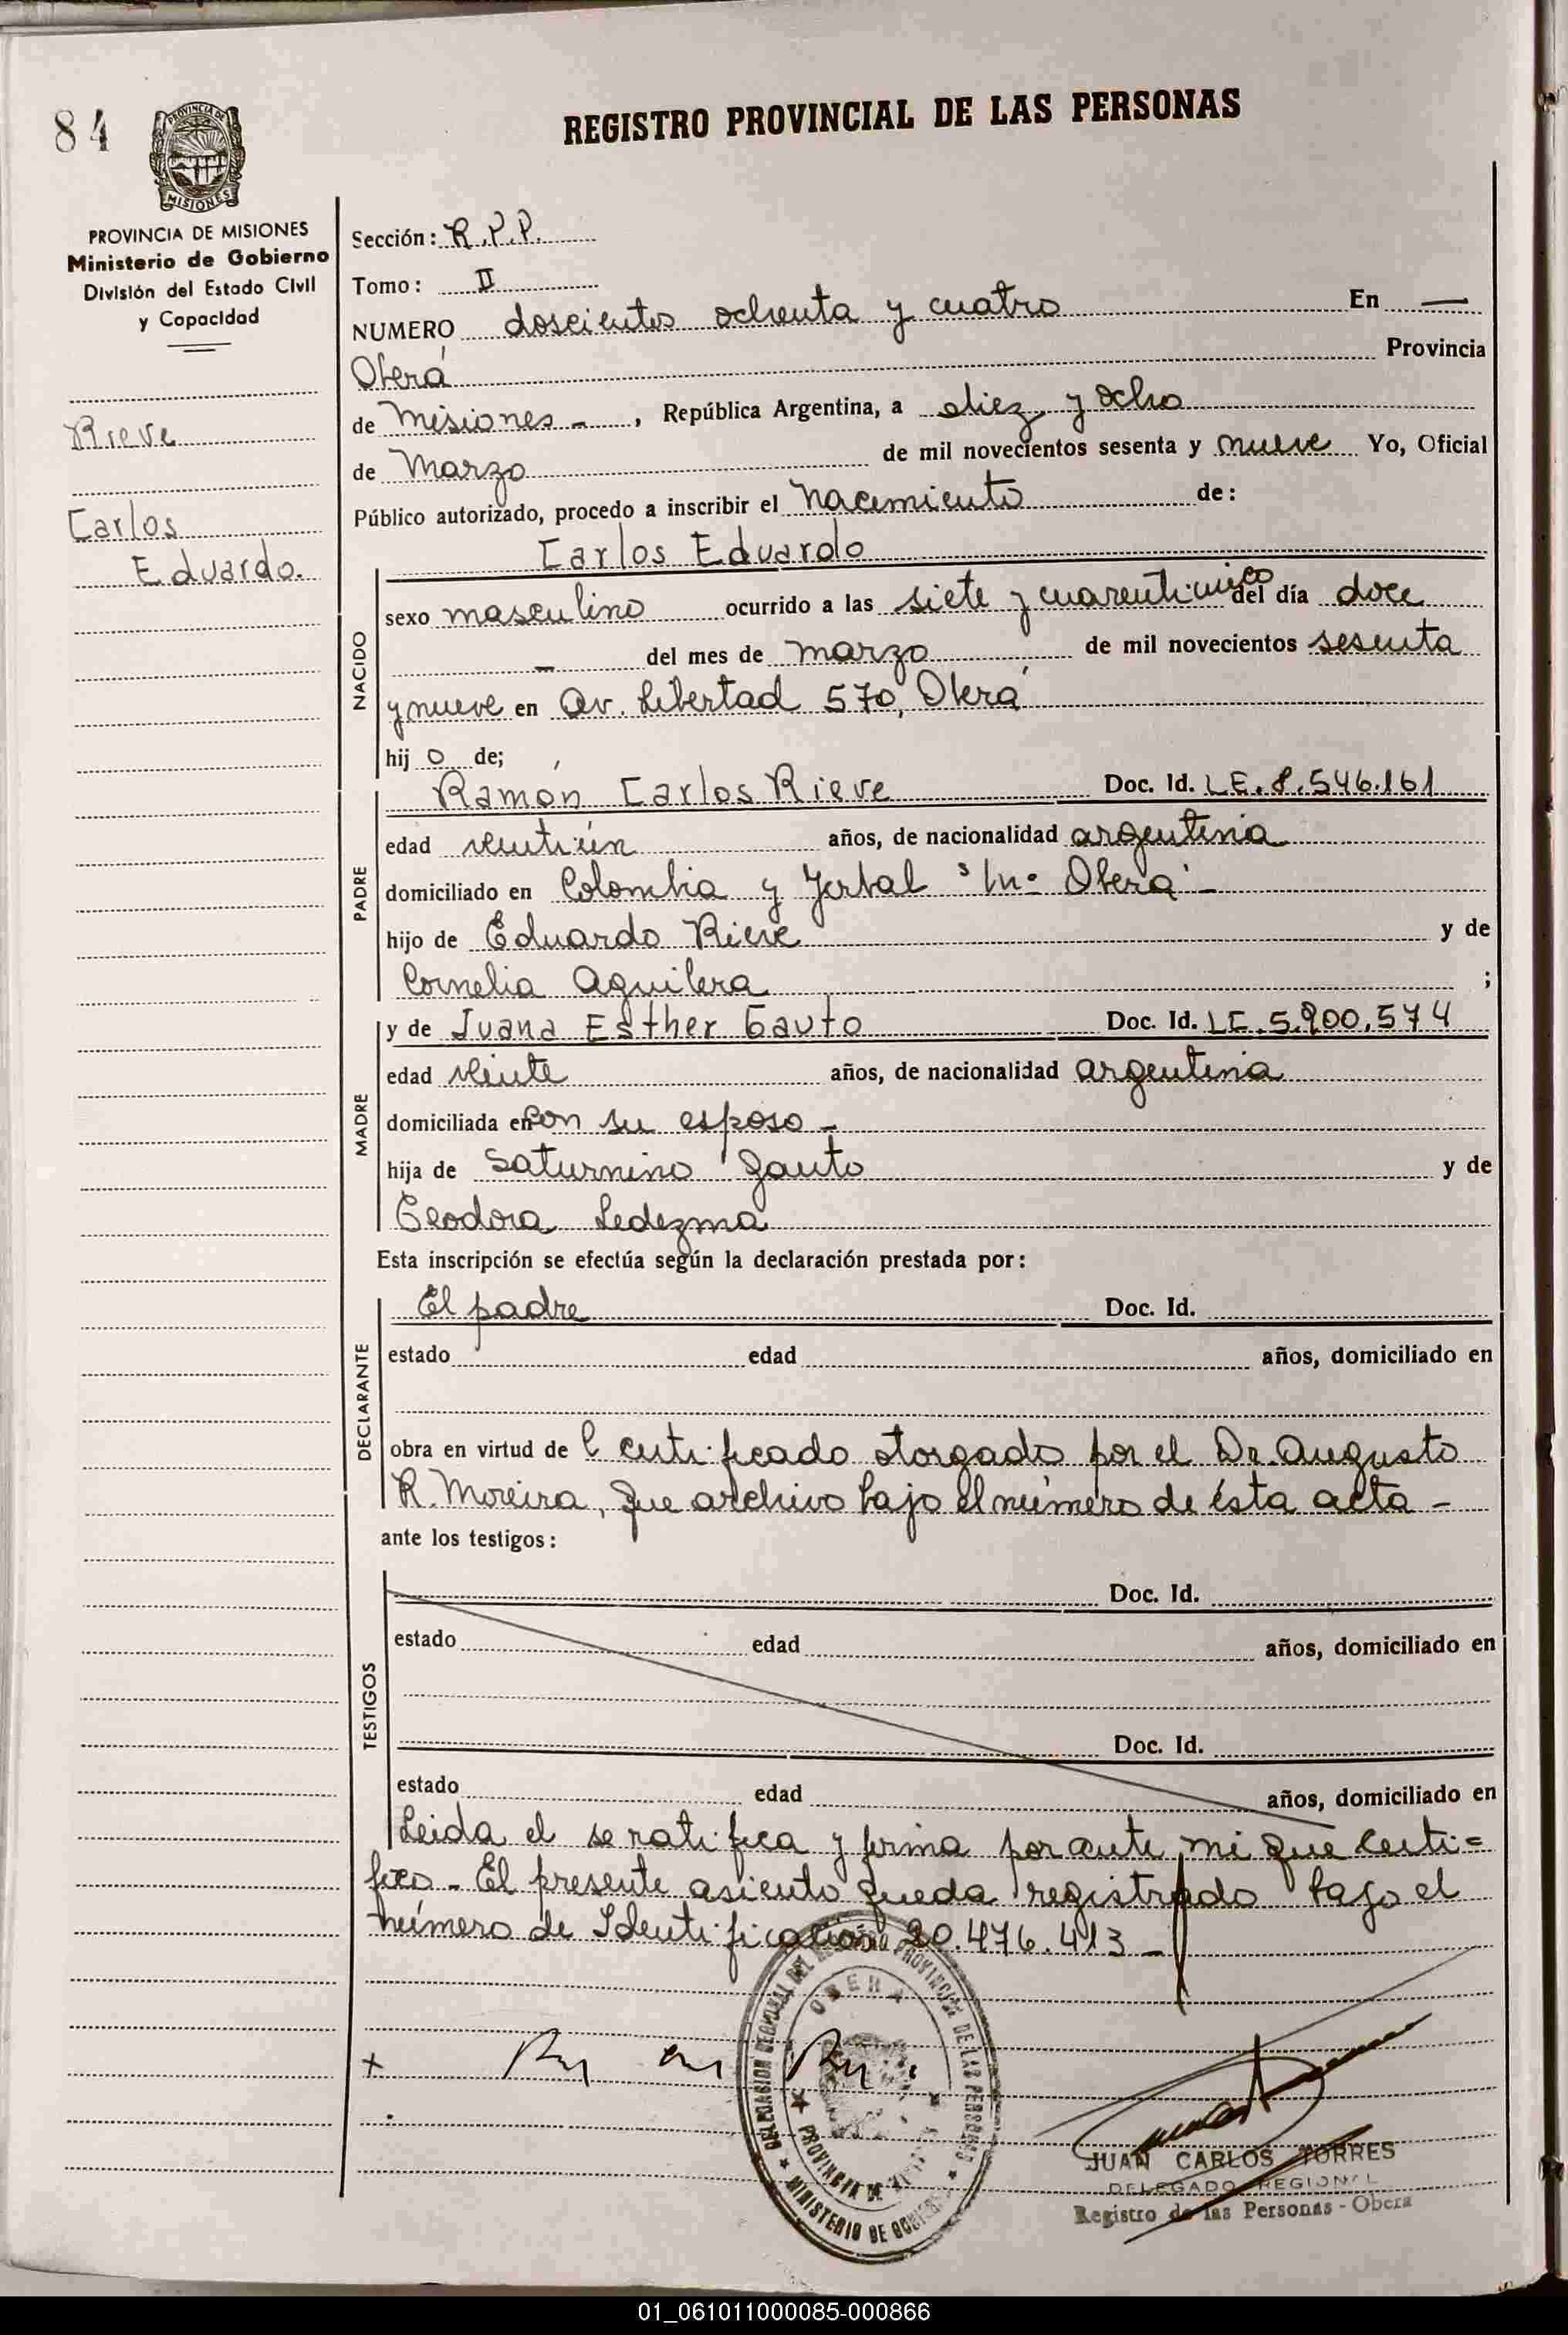 REGISTRO PROVINCIAL DE LAS PERSONAS
84
PROVINCIA DE
MISIONES
PROVINCIA DE MISIONES
Ministerio de Gobierno
División del Estado Civil
y Capacidad
Rieve
Carlos
Eduardo.
Sección: R.P.P.
Tomo: II
NUMERO doscientos ochenta y cuatro En —
Oberá Provincia
de Misiones -, República Argentina, a diez y ocho
de Marzo de mil novecientos sesenta y nueve Yo, Oficial
Público autorizado, procedo a inscribir el Nacimiento de:
Carlos Eduardo
NACIDO
sexo masculino ocurrido a las siete y cuarenticinco del día doce
- del mes de marzo de mil novecientos sesenta
y nueve en Av. Libertad 570, Oberá
hij o de;
PADRE
Ramón Carlos Rieve Doc. Id. LE. 8.546.161
edad veintiún años, de nacionalidad argentina
domiciliado en Colombia y Yerbal s/nº Oberá -
hijo de Eduardo Rieve y de
Cornelia Aguilera ;
MADRE
y de Juana Esther Gauto Doc. Id. LC. 5.900.574
edad veinte años, de nacionalidad argentina
domiciliada en con su esposo -
hija de Saturnino Gauto y de
Teodora Ledezma
Esta inscripción se efectúa según la declaración prestada por:
DECLARANTE
El padre Doc. Id.
estado edad años, domiciliado en
obra en virtud de l certificado otorgado por el Dr. Augusto
R. Moreira, que archivo bajo el número de ésta acta -
ante los testigos:
TESTIGOS
Doc. Id.
estado edad años, domiciliado en
Doc. Id.
estado edad años, domiciliado en
Leida el se ratifica y firma por ante mi que certi=
fico - El presente asiento queda registrado bajo el
número de Identificación 20.476.413 -
DELEGACION REGIONAL DEL REGISTRO PROVINCIAL DE LAS PERSONAS
OBERA
PROVINCIA DE MISIONES
MINISTERIO DE GOBIERNO
JUAN CARLOS TORRES
DELEGADO REGIONAL
Registro de las Personas - Oberá
01_061011000085-000866